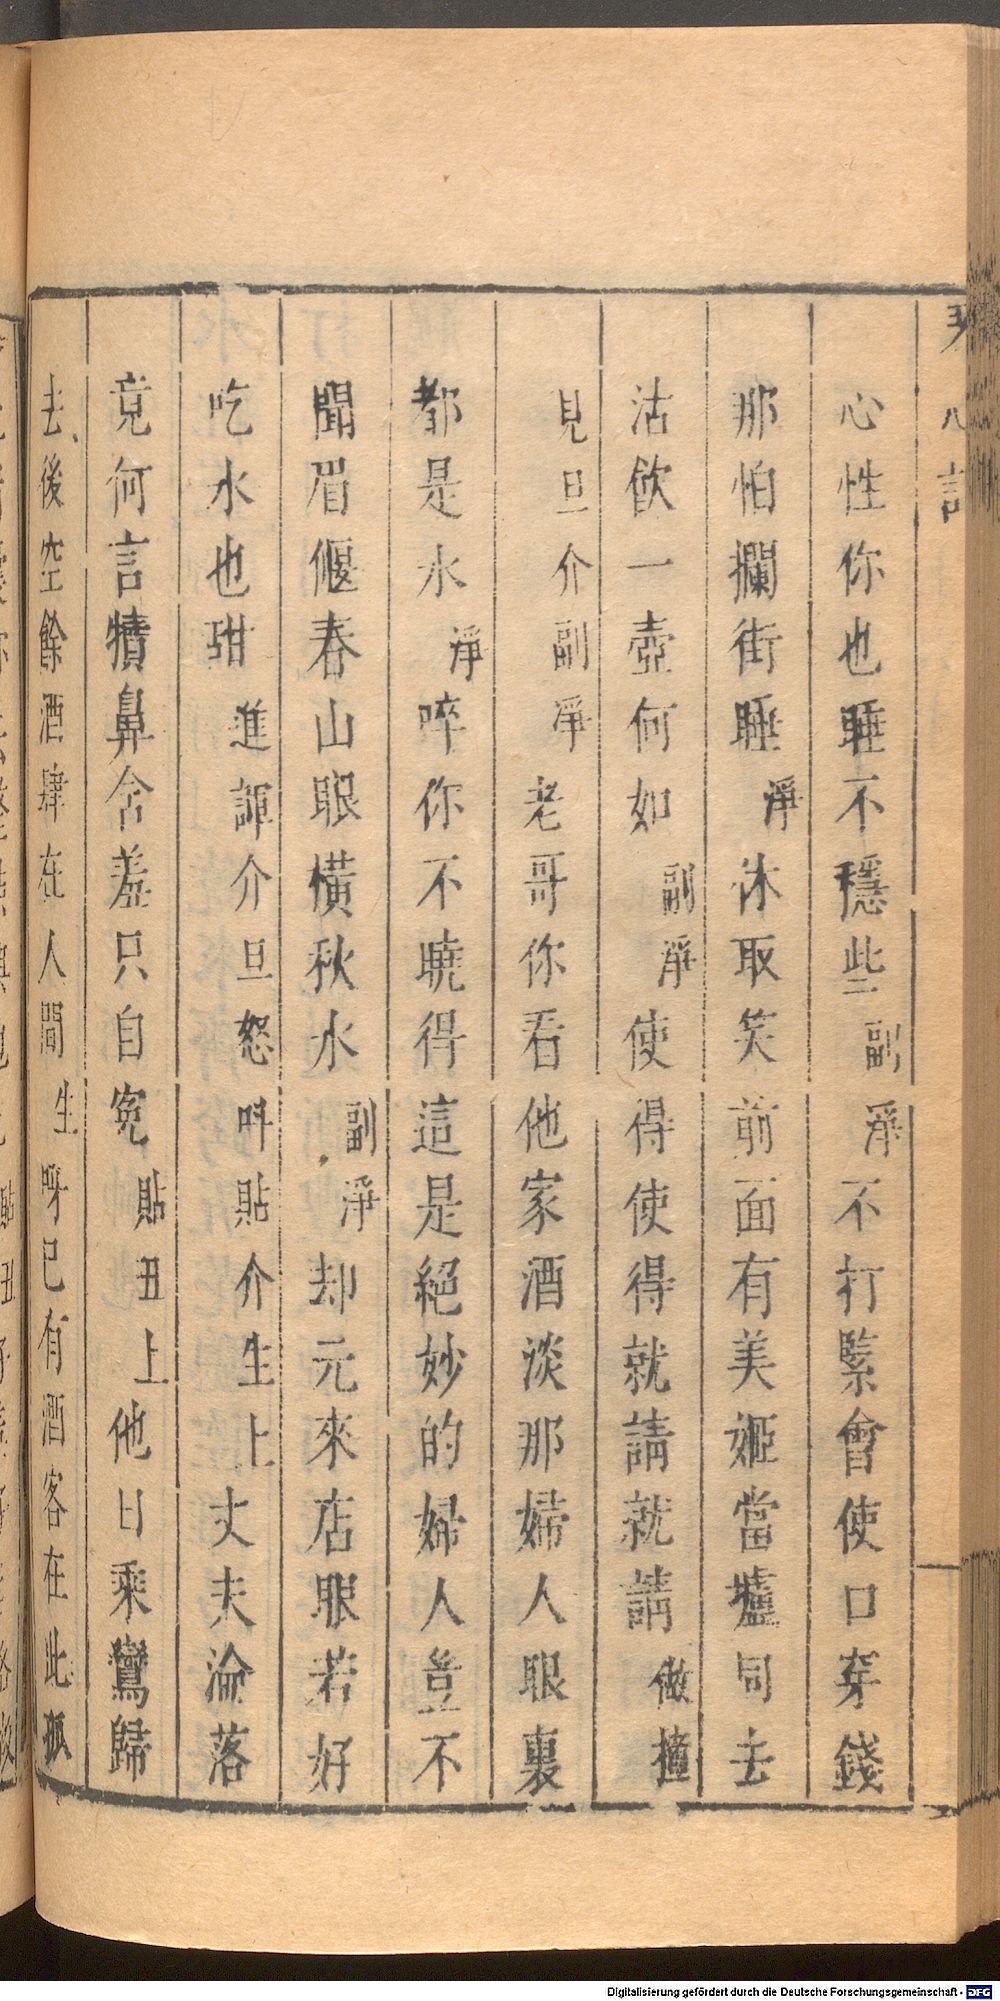 琴心記
心性你也睡不穩些副淨不打緊會使口穿錢
那怕攔街睡淨休取笑前面有美姬當壚同去
沽飲一壺何如副淨使得使得就請就請做撞
見旦介副淨老哥你看他家酒淡那婦人眼裏
都是水淨啐你不曉得這是絕妙的婦人豈不
聞眉偃春山眼橫秋水副淨却元來店眼若好
吃水也甜進諢介旦怒呌貼介生上丈夫淪落
竟何言犢鼻含羞只自寃貼丑上他日乘鸞歸
去後空餘酒肆在人間生呀已有酒客在此孤
Digitalisierung gefördert durch die Deutsche Forschungsgemeinschaft - DFG